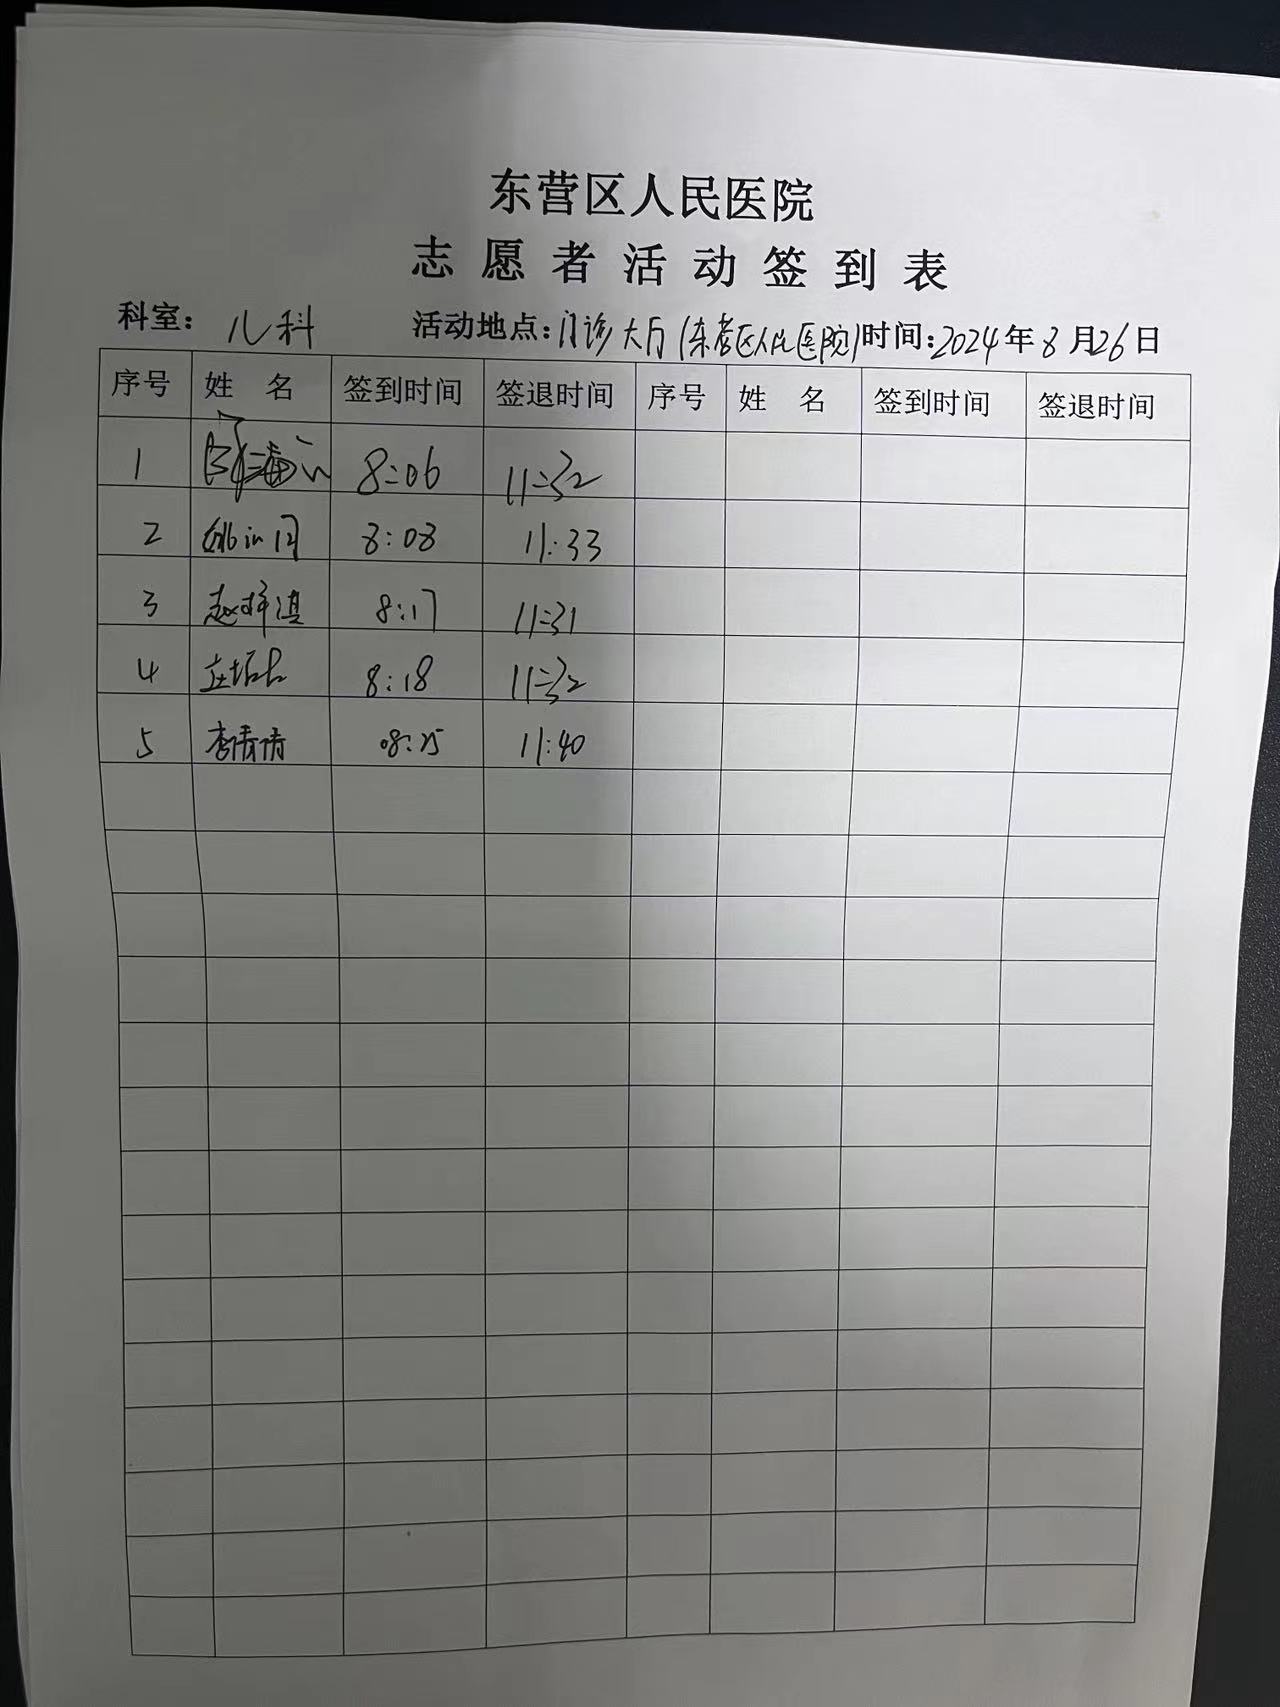 东营区人民医院
志愿者活动签到表
科室：儿科 活动地点：门诊大厅（东营区人民医院）时间：2024年8月26日
序号 姓名 签到时间 签退时间 序号 姓名 签到时间 签退时间
1 8:06 11:32
2 8:08 11:33
3 赵梓淇 8:17 11:31
4 8:18 11:32
5 李倩倩 08:25 11:40